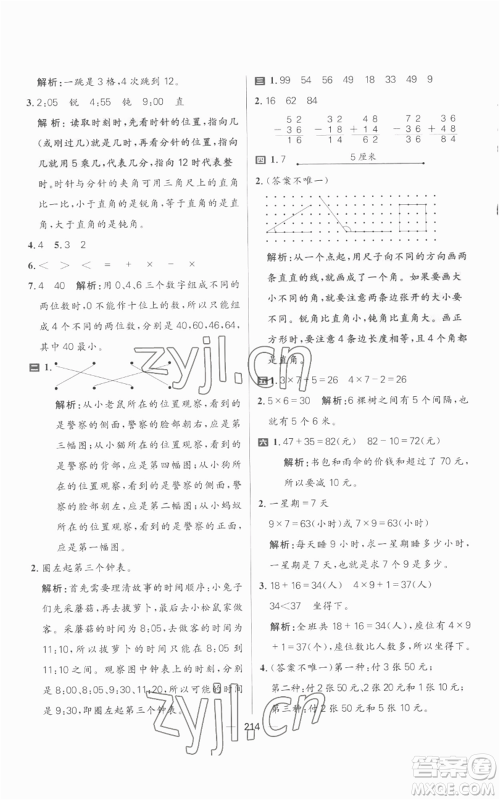 解析:一跳是3格,4次跳到12。
3. 2;05 锐 4;55 钝 9;00 直
解析:读取时刻时,先看时针的位置,指向几
(或刚过几)就是几时,再看分针的位置,指
向几就用5乘几,代表几分,指向12时代表整
时。时针与分针的夹角可用三角尺上的直角
比一比,小于直角的是锐角,等于直角的是直
角,大于直角的是钝角。
4. 4 5. 3 2
6. < > = + × - ×
7. 4 40 解析:用0、4、6三个数字组成不同的
两位数时,0不能作十位上的数字,所以只能
组成4个不同的两位数,分别是40,60,46,64,
其中40最小。
三 1.
解析:从小老鼠所在的位置观察,看到的
是警察的侧面,且警察的脸部朝左,是第三
幅图;从小猫所在的位置观察,看到的是警
察的背部,应是第四幅图;从小狗所在的位
置观察,看到的是警察的侧面,且警察的
脸部朝右,是第二幅图;从小蚂蚁所在的位
置观察,看到的是警察的正面,应是第一幅图。
2. 圈左起第三个钟表。
解析:首先需要理清故事的时间顺序:小兔子
们先采蘑菇,再拔萝卜,最后回家做客。
采蘑菇的时间为8;05,回家的时间为
11;10,所以拔萝卜的时间应在8;05到
11;10之间。观察图中钟表的时间,分别
是8;30,05,9;30,11;10,所以拔萝卜的时
间是9;30,即圈左起第三个钟表。
三 1. 99 54 56 49 33 54 18
2. 16 62 84
5 2 3 2 4 8 6 6
- 3 6 - 1 8 + 1 4 - 4 8
1 6 1 4 6 2 1 8
四 1. 7 5厘米
2. (答案不唯一)
解析:从一个点起,用尺子向不同的方向画两
条直直的线,就画成一个角。如果要画大
小不同的角,只需要改变两边张开的大小
即可。锐角比直角小,钝角比直角大。画正
方形时,要注意4条边长度相等,4个角都
是直角。
五 1. 3×7+5=26 4×7-2=26
2. 5×6=30 解析:6棵树之间有5个间隔,也
就有5个6米。
六 1. 47+35=82(元) 82-10=72(元)
解析:书包和雨伞的价钱和再减去10元,所
以要减10元。
2. 一星期=7天
9×7=63(小时) 7×7=49(小时)
解析:每天睡9小时,求一星期睡多少小时,
就是求7天睡多少小时。
3. 18+16=34(人) 4×9+1=37(人)
34<37 坐得下。
解析:全班共有18+16=34(人),座位数有
4×9+1=37(个),座位数比人数多,所以坐得下。
4. (答案不唯一)第一种:付3张50元。
第二种:付2张50元、2张20元、1张10元。
第三种:付2张50元、5张10元。
zyjl.cn
zyjl.cn
214
答案圈
MXQE.COM